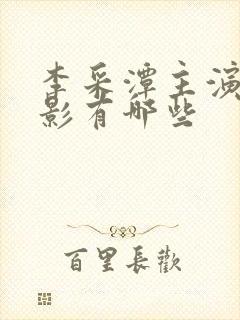 李采潭主演
影有哪些
百里長歡